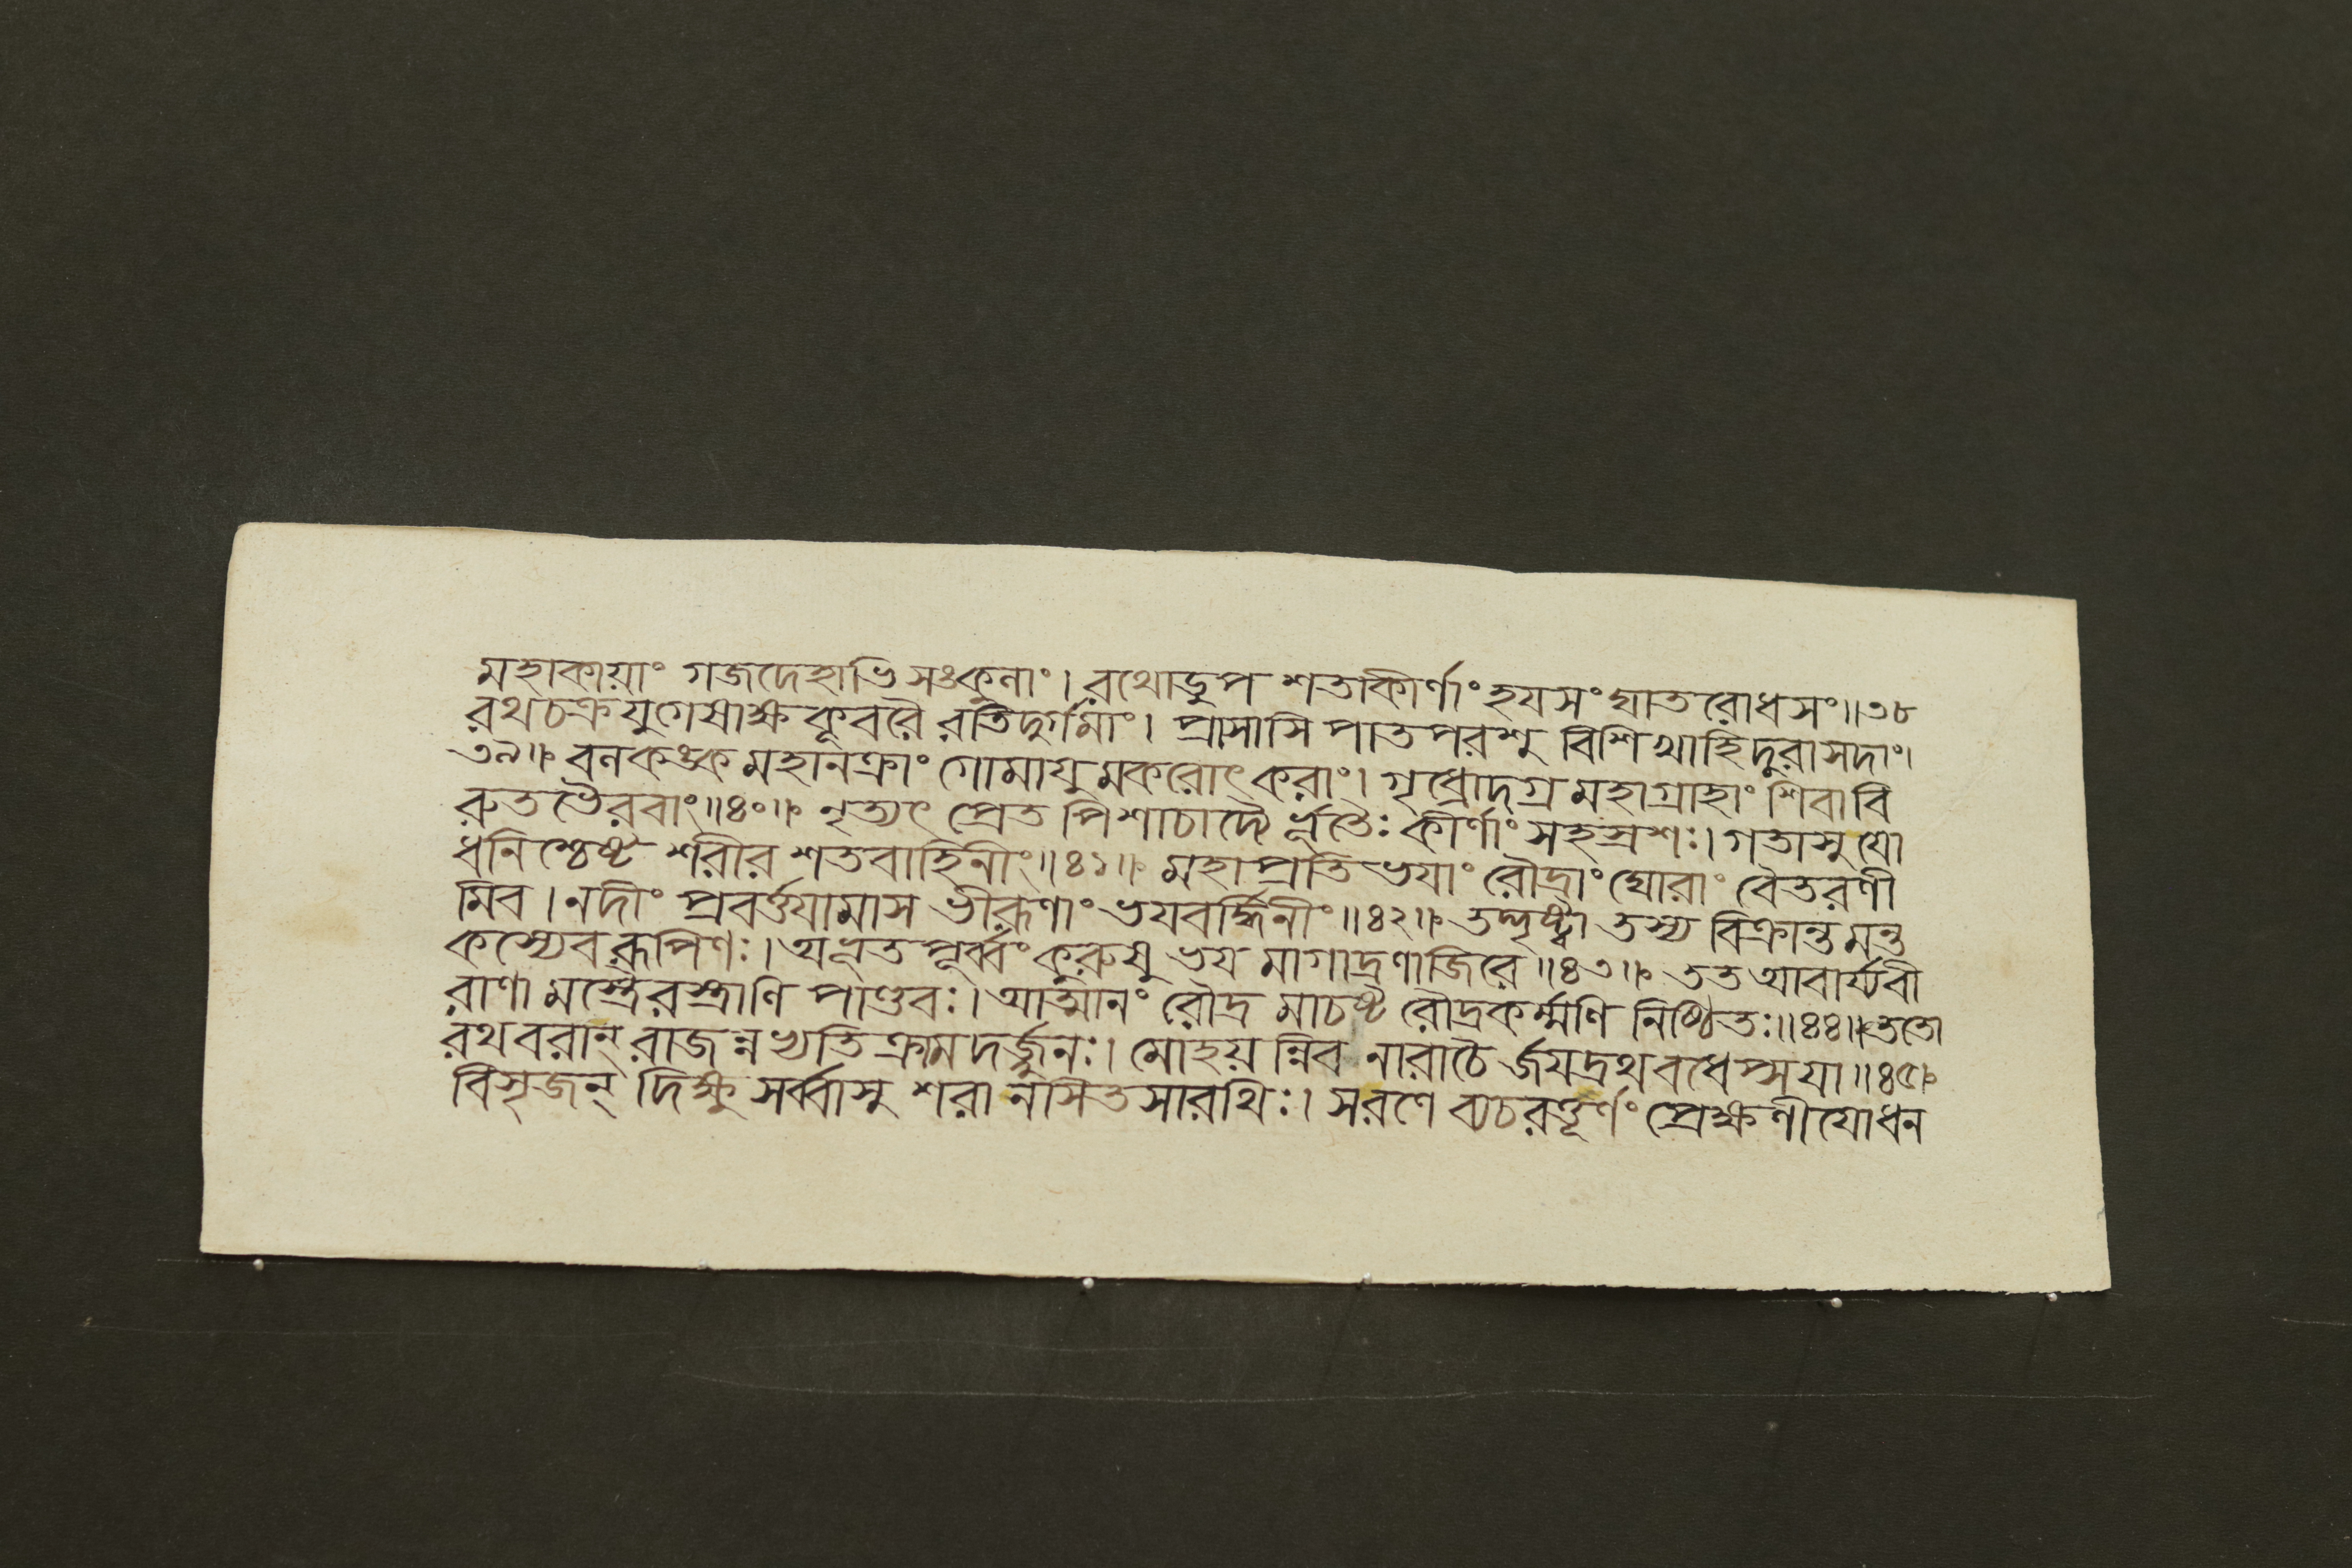 মহাকায়াং গজদেহাভি সঙ্কুলাং। রথোডুপ শতাকীর্ণাং হযসং ঘাতরোধসং॥৩৮
রথচক্রযুগেষাক্ষ কূবরৈ রতিদুর্গমাং। প্রাসাসি পাতপরশু বিশিখাহিদুরাসদাং।
৩৯॥ বলকঙ্ক মহানক্রাং গোমাযুমকরোৎকরাং। গৃধ্রোদগ্র মহাগ্রাহাং শিবাবি
রুতভৈরবাং॥৪০॥ নৃত্যৎ প্রেত পিশাচাদ্যৈ র্ভূতৈঃ কীর্ণাং সহস্রশঃ। গতাসু যো
ধনিশ্চেষ্ট শরীর শতবাহিনীং॥৪১॥ মহাপ্রতি ভযাং রৌদ্রাং ঘোরাং বৈতরণী
মিব। নদীং প্রবর্ত্তযামাস ভীরূণাং ভযবর্দ্ধিনীং॥৪২॥ তন্দৃষ্ট্বা তস্য বিক্রান্তমন্ত
কস্যেব রূপিণঃ। অভূতপূর্ব্বং কুরুষু ভয মাগাদ্রণাজিরে॥৪৩॥ তত আবার্য্যবী
রাণা মস্ত্রৈরস্ত্রাণি পাণ্ডবঃ। আত্মানং রৌদ্র মাচষ্ট রৌদ্রকর্ম্মণি নিষ্ঠিতঃ॥৪৪॥ ততো
রথবরান্ রাজন্নভ্যতি ক্রামদর্জ্জুনঃ। মোহয়ন্নিব নারাচৈ র্জযদ্রথবধেপ্সযা॥৪৫॥
বিসৃজন্ দিক্ষু সর্ব্বাসু শরা নসিতসারথিঃ। সরণে ব্যচরত্তূর্ণং প্রেক্ষণীযোধন